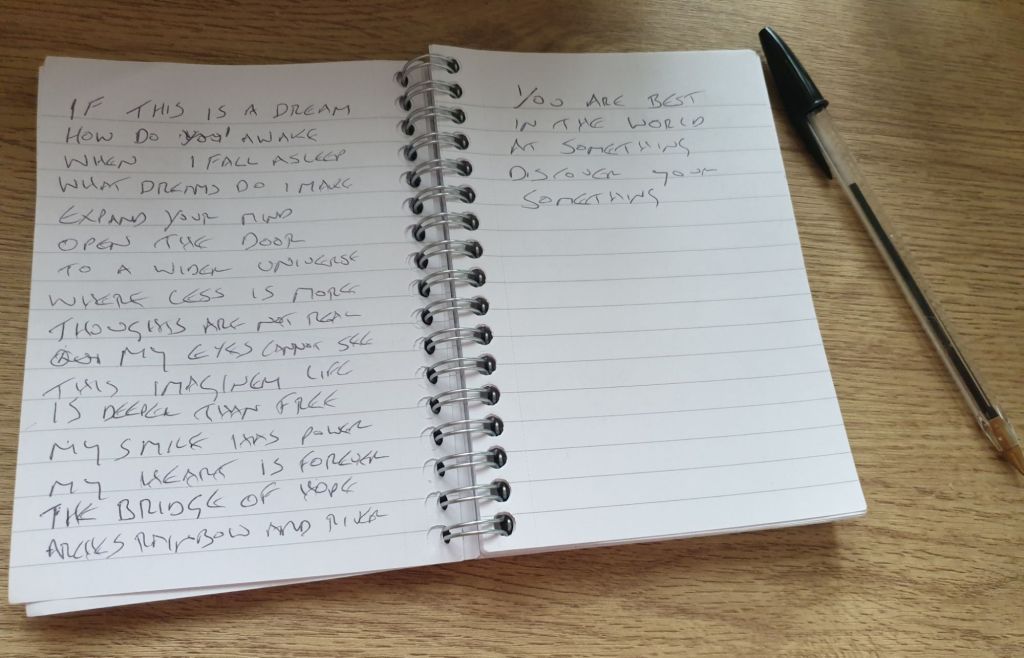 IF THIS IS A DREAM
HOW DO YOU AWAKE
WHEN I FALL ASLEEP
WHAT DREAMS DO I MAKE
EXPAND YOUR MIND
OPEN THE DOOR
TO A WIDER UNIVERSE
WHERE LESS IS MORE
THOUGHTS ARE NOT REAL
MY EYES CANNOT SEE
THIS LIFE
IS DEEPER THAN FREE
MY SMILE HAS POWER
MY HEART IS FOREVER
THE BRIDGE OF HOPE
ARCHES RAINBOW AND RIVER
YOU ARE BEST
IN THE WORLD
AT SOMETHING
DISCOVER YOUR
SOMETHING